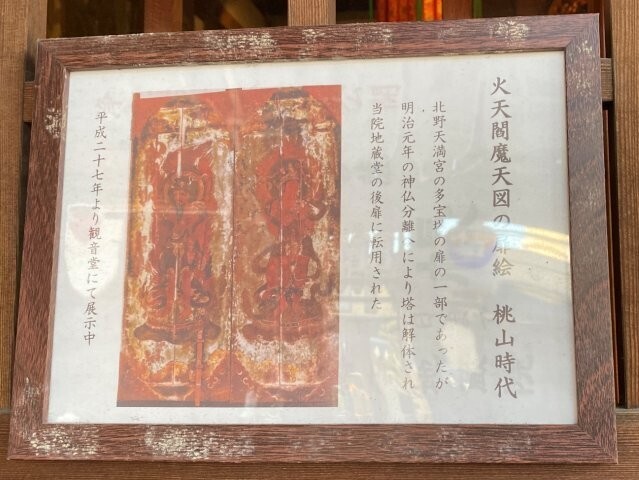 火天閻魔天図の扉絵　桃山時代
北野天満宮の多宝塔の扉の一部であったが
明治元年の神仏分離へにより塔は解体され
当院地蔵堂の後扉に転用された
平成二十七年より観音堂にて展示中